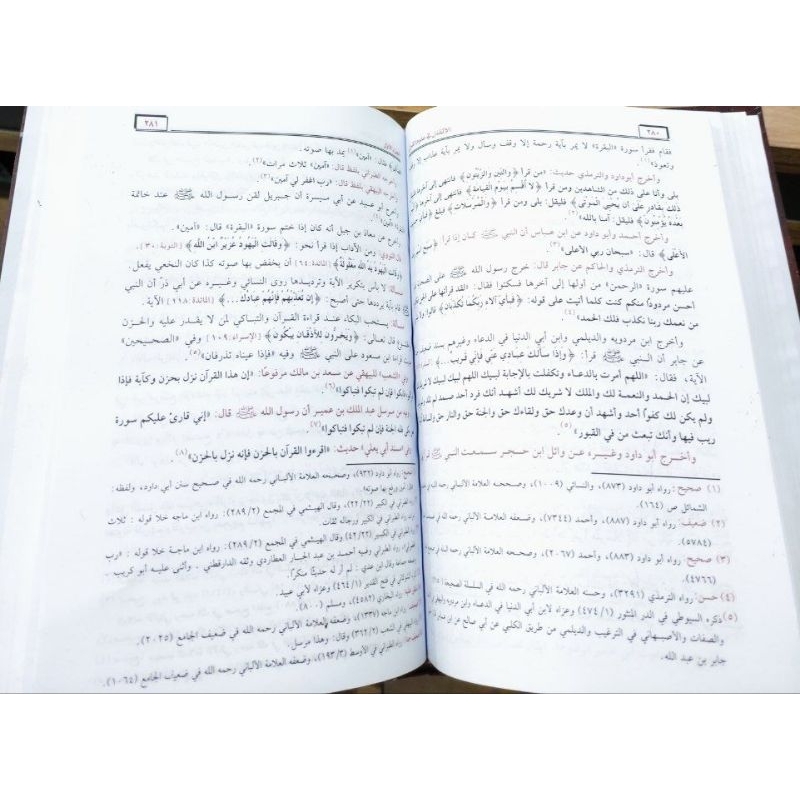 ٢٨٠
الإتقان في علوم
فقام فقرأ سورة «البقرة» لا يمر بآية رحمة إلا وقف وسأل ولا يمر بآية عذاب إلا
وتعوذ»(١).
وأخرج أبوداود والترمذي حديث: «من قرأ ﴿وَالتِّينِ وَالزَّيْتُونِ﴾ فانتهى إلى آخرها
بلى وأنا على ذلك من الشاهدين ومن قرأ ﴿لَا أُقْسِمُ بِيَوْمِ الْقِيَامَةِ﴾ فانتهى إلى آخرها
ذلك بقادر على أن يحيي الموتى﴾ فليقل: بلى ومن قرأ ﴿وَالْمُرْسَلَاتِ﴾ فبلغ ﴿
بَعْدَهُ يُؤْمِنُونَ﴾ فليقل: آمنا بالله»(٢).
وأخرج أحمد وأبو داود عن ابن عباس أن النبي ﷺ كان إذا قرأ: ﴿سَبِّحِ
الْأَعْلَى﴾ قال: «سبحان ربي الأعلى»(٣).
وأخرج الترمذي والحاكم عن جابر قال: خرج رسول الله ﷺ على الصحابة
عليهم سورة «الرحمن» من أولها إلى آخرها فسكتوا فقال: «لقد قرأتها على
أحسن مردوداً منكم كنت كلما أتيت على قوله: ﴿فَبِأَيِّ آلَاءِ رَبِّكُمَا تُكَذِّبَانِ﴾ قالوا
من نعمك ربنا نكذب فلك الحمد»(٤).
وأخرج ابن مردويه والديلمي وابن أبي الدنيا في الدعاء وغيرهم بسند
عن جابر أن النبي ﷺ قرأ: ﴿وَإِذَا سَأَلَكَ عِبَادِي عَنِّي فَإِنِّي قَرِيبٌ...﴾
الآية، فقال: «اللهم أمرت بالدعاء وتكفلت بالإجابة لبيك اللهم لبيك لبيك
لبيك إن الحمد والنعمة لك والملك لا شريك لك أشهد أنك فرد أحد صمد لم يلد
ولم يكن لك كفواً أحد وأشهد أن وعدك حق ولقاءك حق والجنة حق والنار حق والساعة
ريب فيها وأنك تبعث من في القبور»(٥).
وأخرج أبو داود وغيره عن وائل ابن حجر سمعت النبي ﷺ
(١) صحيح: رواه أبو داود (٨٧٣)، والنسائي (١٠٠٩)، وصححه العلامة الألباني رحمه الله في
الشمائل ص (١٦٤).
(٢) ضعيف: رواه أبو داود (٨٨٧)، وأحمد (٧٣٤٤)، وضعفه العلامة الألباني رحمه الله في
(٥٧٨٤).
(٣) صحيح: رواه أبو داود (٨٨٣)، وأحمد (٢٠٦٧)، وصححه العلامة الألباني رحمه الله في
(٤٧٦٦).
(٤) حسن: رواه الترمذي (٣٢٩١)، وحسنه العلامة الألباني رحمه الله في السلسلة الصحيحة
(٥) ذكره السيوطي في الدر المنثور (٤٧٤/١) وعزاه لابن أبي الدنيا في الدعاء وابن مردويه والبيهقي في
والصفات والأصبهاني في الترغيب والديلمي من طريق الكلبي عن أبي صالح عن ابن عباس
جابر بن عبد الله.
٢٨١
فقال: «آمين»(١) يمد بها صوته.
وأخرجه الطبراني بلفظ قال: «آمين» ثلاث مرات»(٢).
وأخرجه البيهقي بلفظ قال: «رب اغفر لي آمين»(٣).
وأخرج أبو عبيد عن أبي ميسرة أن جبريل لقن رسول الله ﷺ عند خاتمة
وأخرج عن معاذ بن جبل أنه كان إذا ختم سورة «البقرة» قال: «آمين».
قال النووي: ومن الآداب إذا قرأ نحو: ﴿وَقَالَتِ الْيَهُودُ عُزَيْرٌ ابْنُ اللَّهِ﴾ [التوبة: ٣٠]،
﴿وَقَالَتِ الْيَهُودُ يَدُ اللَّهِ مَغْلُولَةٌ﴾ [المائدة: ٦٤] أن يخفض بها صوته كذا كان النخعي يفعل.
مسألة: لا بأس بتكرير الآية وترديدها روى النسائي وغيره عن أبي ذر أن النبي
ﷺ قام بآية يرددها حتى أصبح: ﴿إِن تُعَذِّبْهُمْ فَإِنَّهُمْ عِبَادُكَ...﴾ [المائدة: ١١٨] الآية.
مسألة: يستحب البكاء عند قراءة القرآن والتباكي لمن لا يقدر عليه والحزن
قال تعالى: ﴿وَيَخِرُّونَ لِلْأَذْقَانِ يَبْكُونَ﴾ [الإسراء: ١٠٩] وفي «الصحيحين»
قراءة ابن مسعود على النبي ﷺ وفيه «فإذا عيناه تذرفان»(٥).
وفي «الشعب» للبيهقي عن سعد بن مالك مرفوعاً: «إن هذا القرآن نزل بحزن وكآبة فإذا
فابكوا فإن لم تبكوا فتباكوا»(٦).
وفيه من مرسل عبد الملك بن عمير أن رسول الله ﷺ قال: «إني قارئ عليكم سورة
فله الجنة فإن لم تبكوا فتباكوا»(٧).
وفي «مسند أبي يعلى» حديث: «اقرءوا القرآن بالحزن فإنه نزل بالحزن»(٨).
صحيح: رواه أبو داود (٩٣٢)، وصححه العلامة الألباني رحمه الله في صحيح سنن أبي داود، ولفظه:
آمين ورفع بها صوته».
رواه الطبراني في الكبير (٢٢/٢٢)، وقال الهيثمي في المجمع (٢٨٩/٢): رواه ابن ماجه خلا قوله: ثلاث
رواه الطبراني في الكبير ورجاله ثقات.
رواه الطبراني في الكبير (٤٢/٢٢)، وقال الهيثمي في المجمع (٢٨٩/٢): رواه ابن ماجة خلا قوله: «رب
رواه الطبراني وفيه أحمد بن عبد الجبار العطاردي وثقه الدارقطني، وأثنى عليه أبو كريب.
جماعة وقال ابن عدي: لم أر له حديثاً منكراً.
الشوكاني في فتح القدير (٤٦٤/١) وعزاه لأبي عبيد.
رواه البخاري (٤٥٨٢)، ومسلم (٨٠٠).
رواه ابن ماجه (١٣٣٧)، وضعفه العلامة الألباني رحمه الله في ضعيف الجامع (٢٠٢٥).
في الشعب (٣٦٢/٢) وقال: وهذا مرسل.
رواه الطبراني في الأوسط (١٩٣/٣)، وضعفه العلامة الألباني رحمه الله في ضعيف الجامع (١٠٦٤).